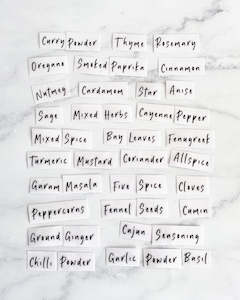 Curry Powder Thyme Rosemary
Oregano Smoked Paprika Cinnamon
Nutmeg Cardamom Star Anise
Sage Mixed Herbs Cayenne Pepper
Mixed Spice Bay Leaves Fenugreek
Turmeric Mustard Coriander Allspice
Garam Masala Five Spice Cloves
Peppercorns Fennel Seeds Cumin
Ground Ginger Cajun Seasoning
Chilli Powder Garlic Powder Basil